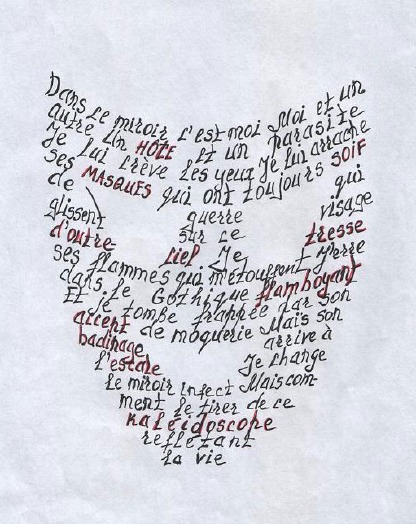 Dans le miroir c'est moi Moi et un
autre Un HÔTE et un parasite
Je lui crève les yeux Je lui arrache
ses MASQUES qui ont toujours SOIF
de guerre qui
glissent sur ce visage
d'outre ciel Je tresse
ses flammes qui m'étouffent J'erre
dans le Gothique flamboyant
Et je tombe frappée par son
accent de moquerie Mais son
badinage arrive à
l'escale Je change
le miroir infect Mais com-
ment le tirer de ce
kaléidoscope
reflétant
la vie